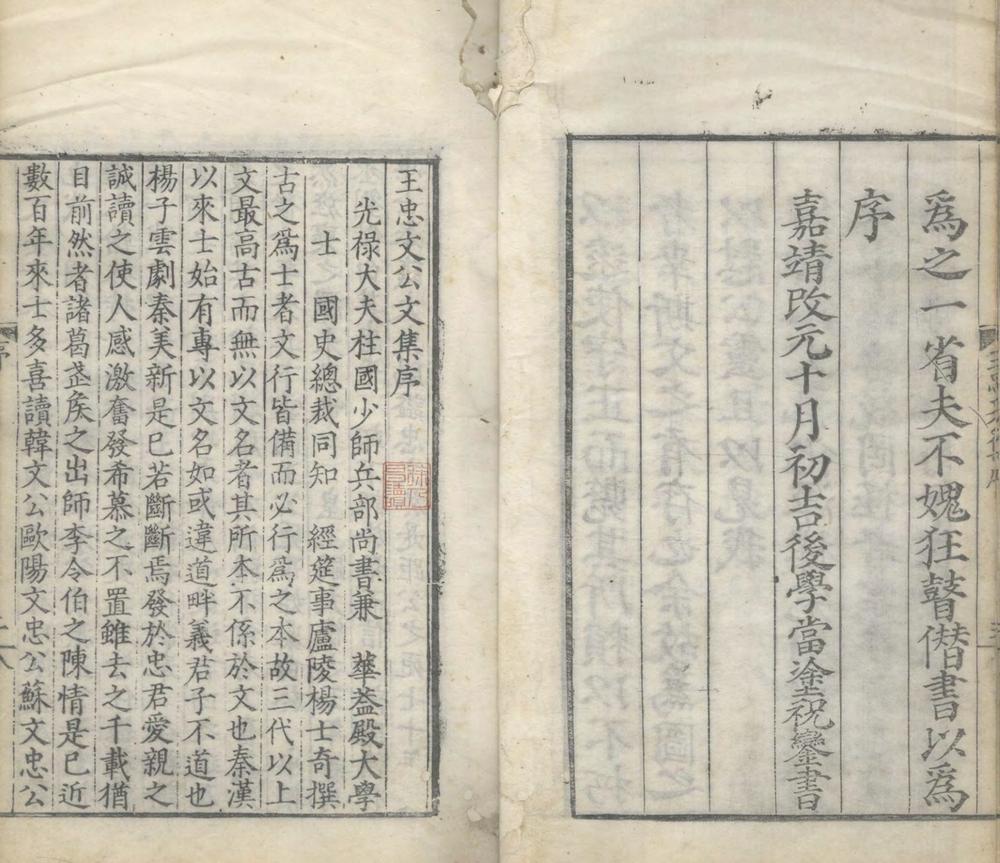 爲之一省夫不媿狂瞽僣書以爲
序
嘉靖改元十月初吉後學當塗祝鑾書
王忠文公文集序
光祿大夫柱國少師兵部尚書兼　華蓋殿大學
士　國史總裁同知　經筵事廬陵楊士奇撰
古之爲士者文行皆備而必行爲之本故三代以上
文最高古而無以文名者其所本不係於文也秦漢
以來士始有專以文名如或違道畔義君子不道也
楊子雲劇秦美新是已若斷斷焉發於忠君愛親之
誠讀之使人感激奮發希慕之不置雖去之千載猶
目前然者諸葛武矦之出師李令伯之陳情是已近
數百年來士多喜讀韓文公歐陽文忠公蘇文忠公